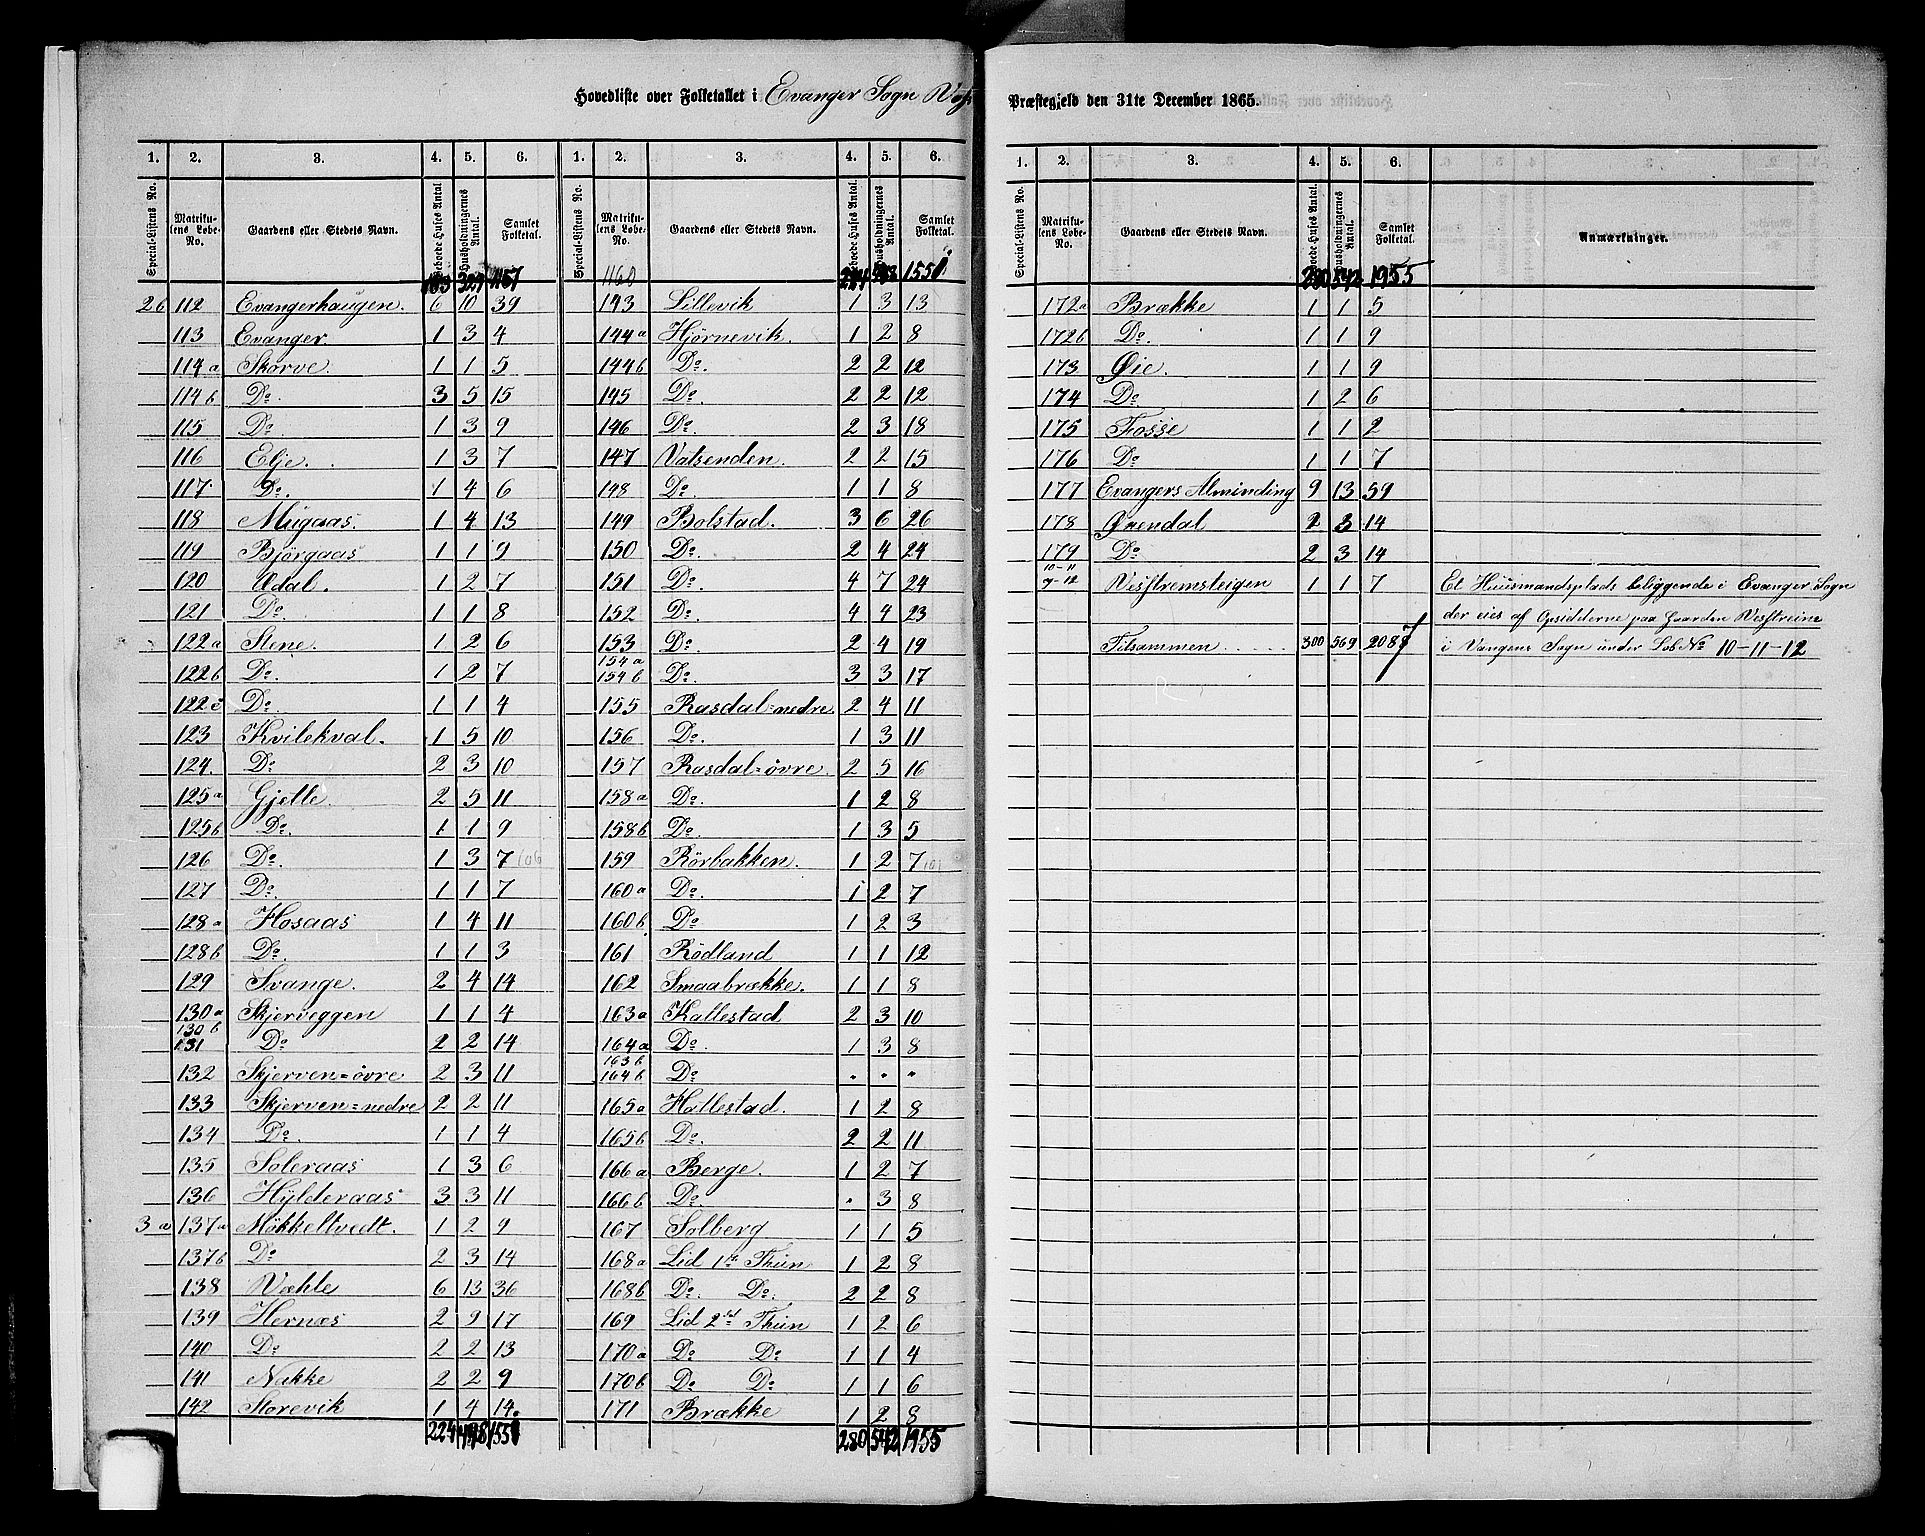 Hovedliste over Folketallet i Evanger Sogn
Præstegjeld den 31te December 1865.
1. 2. 3. 4. 5. 6.
Special-Listens No. Matrikulens Løbe-No. Gaardens eller Stedets Navn. Beboede Huses Antal. Husholdningernes Antal. Samlet Folketal.
183 329 1157
26 112 Evangerhaugen. 6 10 39
113 Evanger. 1 3 4
114a Skorve. 1 1 5
114b Do. 3 5 15
115 Do. 1 3 9
116 Elje. 1 3 7
117 Do. 1 4 6
118 Mugaas. 1 4 13
119 Bjørgaas 1 1 9
120 Ædal. 1 2 7
121 Do. 1 1 8
122a Stene. 1 2 6
122b Do. 1 2 7
122c Do. 1 1 4
123 Kvilekval. 1 5 10
124. Do 2 3 10
125a Gjelle. 2 5 11
125b Do. 1 1 9
126 Do. 1 3 7 106
127 Do. 1 1 7
128a Hosaas 1 4 11
128b Do. 1 1 3
129 Svange. 2 4 14
130a Skjerveggen 1 1 4
130b 131 Do 2 2 14
132 Skjerven=øvre 2 3 11
133 Skjerven=nedre 2 2 11
134 Do. 1 1 4
135 Soleraas 1 3 6
136 Hylderaas 3 3 11
3a 137a Møkkeltvedt. 1 2 9
137b Do 2 3 14
138 Væhle 6 13 36
139 Hernæs 2 9 17
140 Do 2 2 13
141 Nakke 2 2 9
142 Storevik 1 4 14.
224 498 1551
1. 2. 3. 4. 5. 6.
Special-Listens No. Matrikulens Løbe-No. Gaardens eller Stedets Navn. Beboede Huses Antal. Husholdningernes Antal. Samlet Folketal.
1160 224 1551
143 Lillevik 1 3 13
144a Hjørnevik. 1 2 8
144b Do. 2 2 12
145 Do. 2 2 12
146 Do. 2 3 18
147 Vatsenden. 2 2 15
148 Do. 1 1 8
149 Bolstad. 3 6 26
150 Do. 2 4 24
151 Do. 4 7 24
152 Do. 4 4 23
153 Do. 2 4 19
154a 154b Do. 3 3 17
155 Rasdal=nedre. 2 4 11
156 Do. 1 3 11
157 Rasdal=øvre. 2 5 16
158a Do. 1 2 8
158b Do. 1 3 5
159 Rørbakken. 1 2 7
160a Do. 1 2 7
160b Do. 1 2 3
161 Rødland 1 1 12
162 Smaabrække. 1 1 8
163a Kallestad 2 3 10
164a Do. 1 3 8
163b 164b Do. " " "
165a Hallestad. 1 2 8
165b Do. 2 2 11
166a Berge. 1 2 7
166b Do. " 3 8
167 Solberg 1 1 5
168a Lid 1ste Thun 1 2 8
168b Do. Do. 2 2 8
169 Lid 2det Thun 1 2 6
170a Do Do 1 1 4
170b Do Do 1 1 6
171 Brække 1 2 8
280 542 1955
1. 2. 3. 4. 5. 6.
Special-Listens No. Matrikulens Løbe-No. Gaardens eller Stedets Navn. Beboede Huses Antal. Husholdningernes Antal. Samlet Folketal. Anmærkninger.
280 542 1955
172a Brække 1 1 5
172b Do. 1 1 9
173 Øie. 1 1 9
174 Do. 1 2 6
175 Fosse 1 1 2
176 Do 1 1 7
177 Evangers Alminding 9 13 59
178 Øxendal 2 3 14
179 Do 2 3 14
10-11
9-12 1 1 7 Et Huusmandsplads beliggende i Evanger Sogn
der eies af Opsidderne paa Gaarden
Tilsammen 300 569 2087 i Vangens Sogn under Løb No 10-11-12